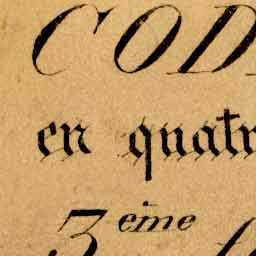 COD
en quatr
3eme